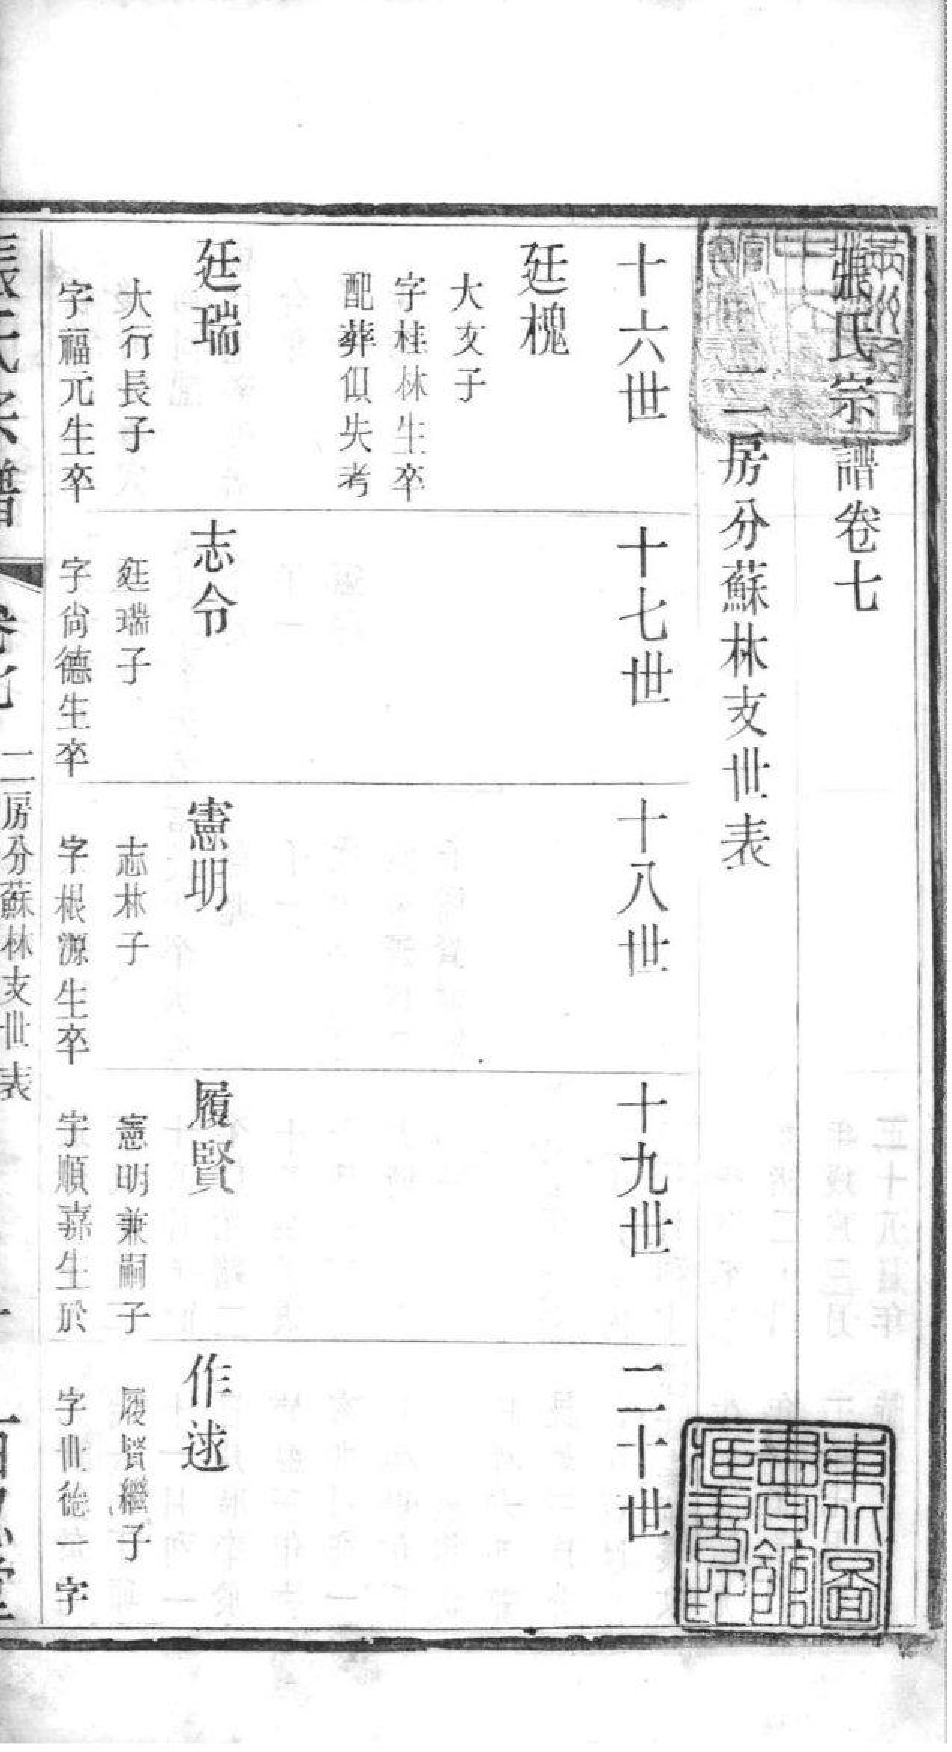 張氏宗譜卷七
二房分蘇林支世表
十六世
廷槐
大友子
字桂林生卒
配葬俱失考
廷瑞
大行長子
字福元生卒
十七世
志令
廷瑞子
字尙德生卒
十八世
憲明
志林子
字根源生卒
十九世
履賢
憲明兼嗣子
字順嘉生於
二十世
作逑
履賢繼子
字世德一字
張氏宗譜
卷七
二房分蘇林支世表